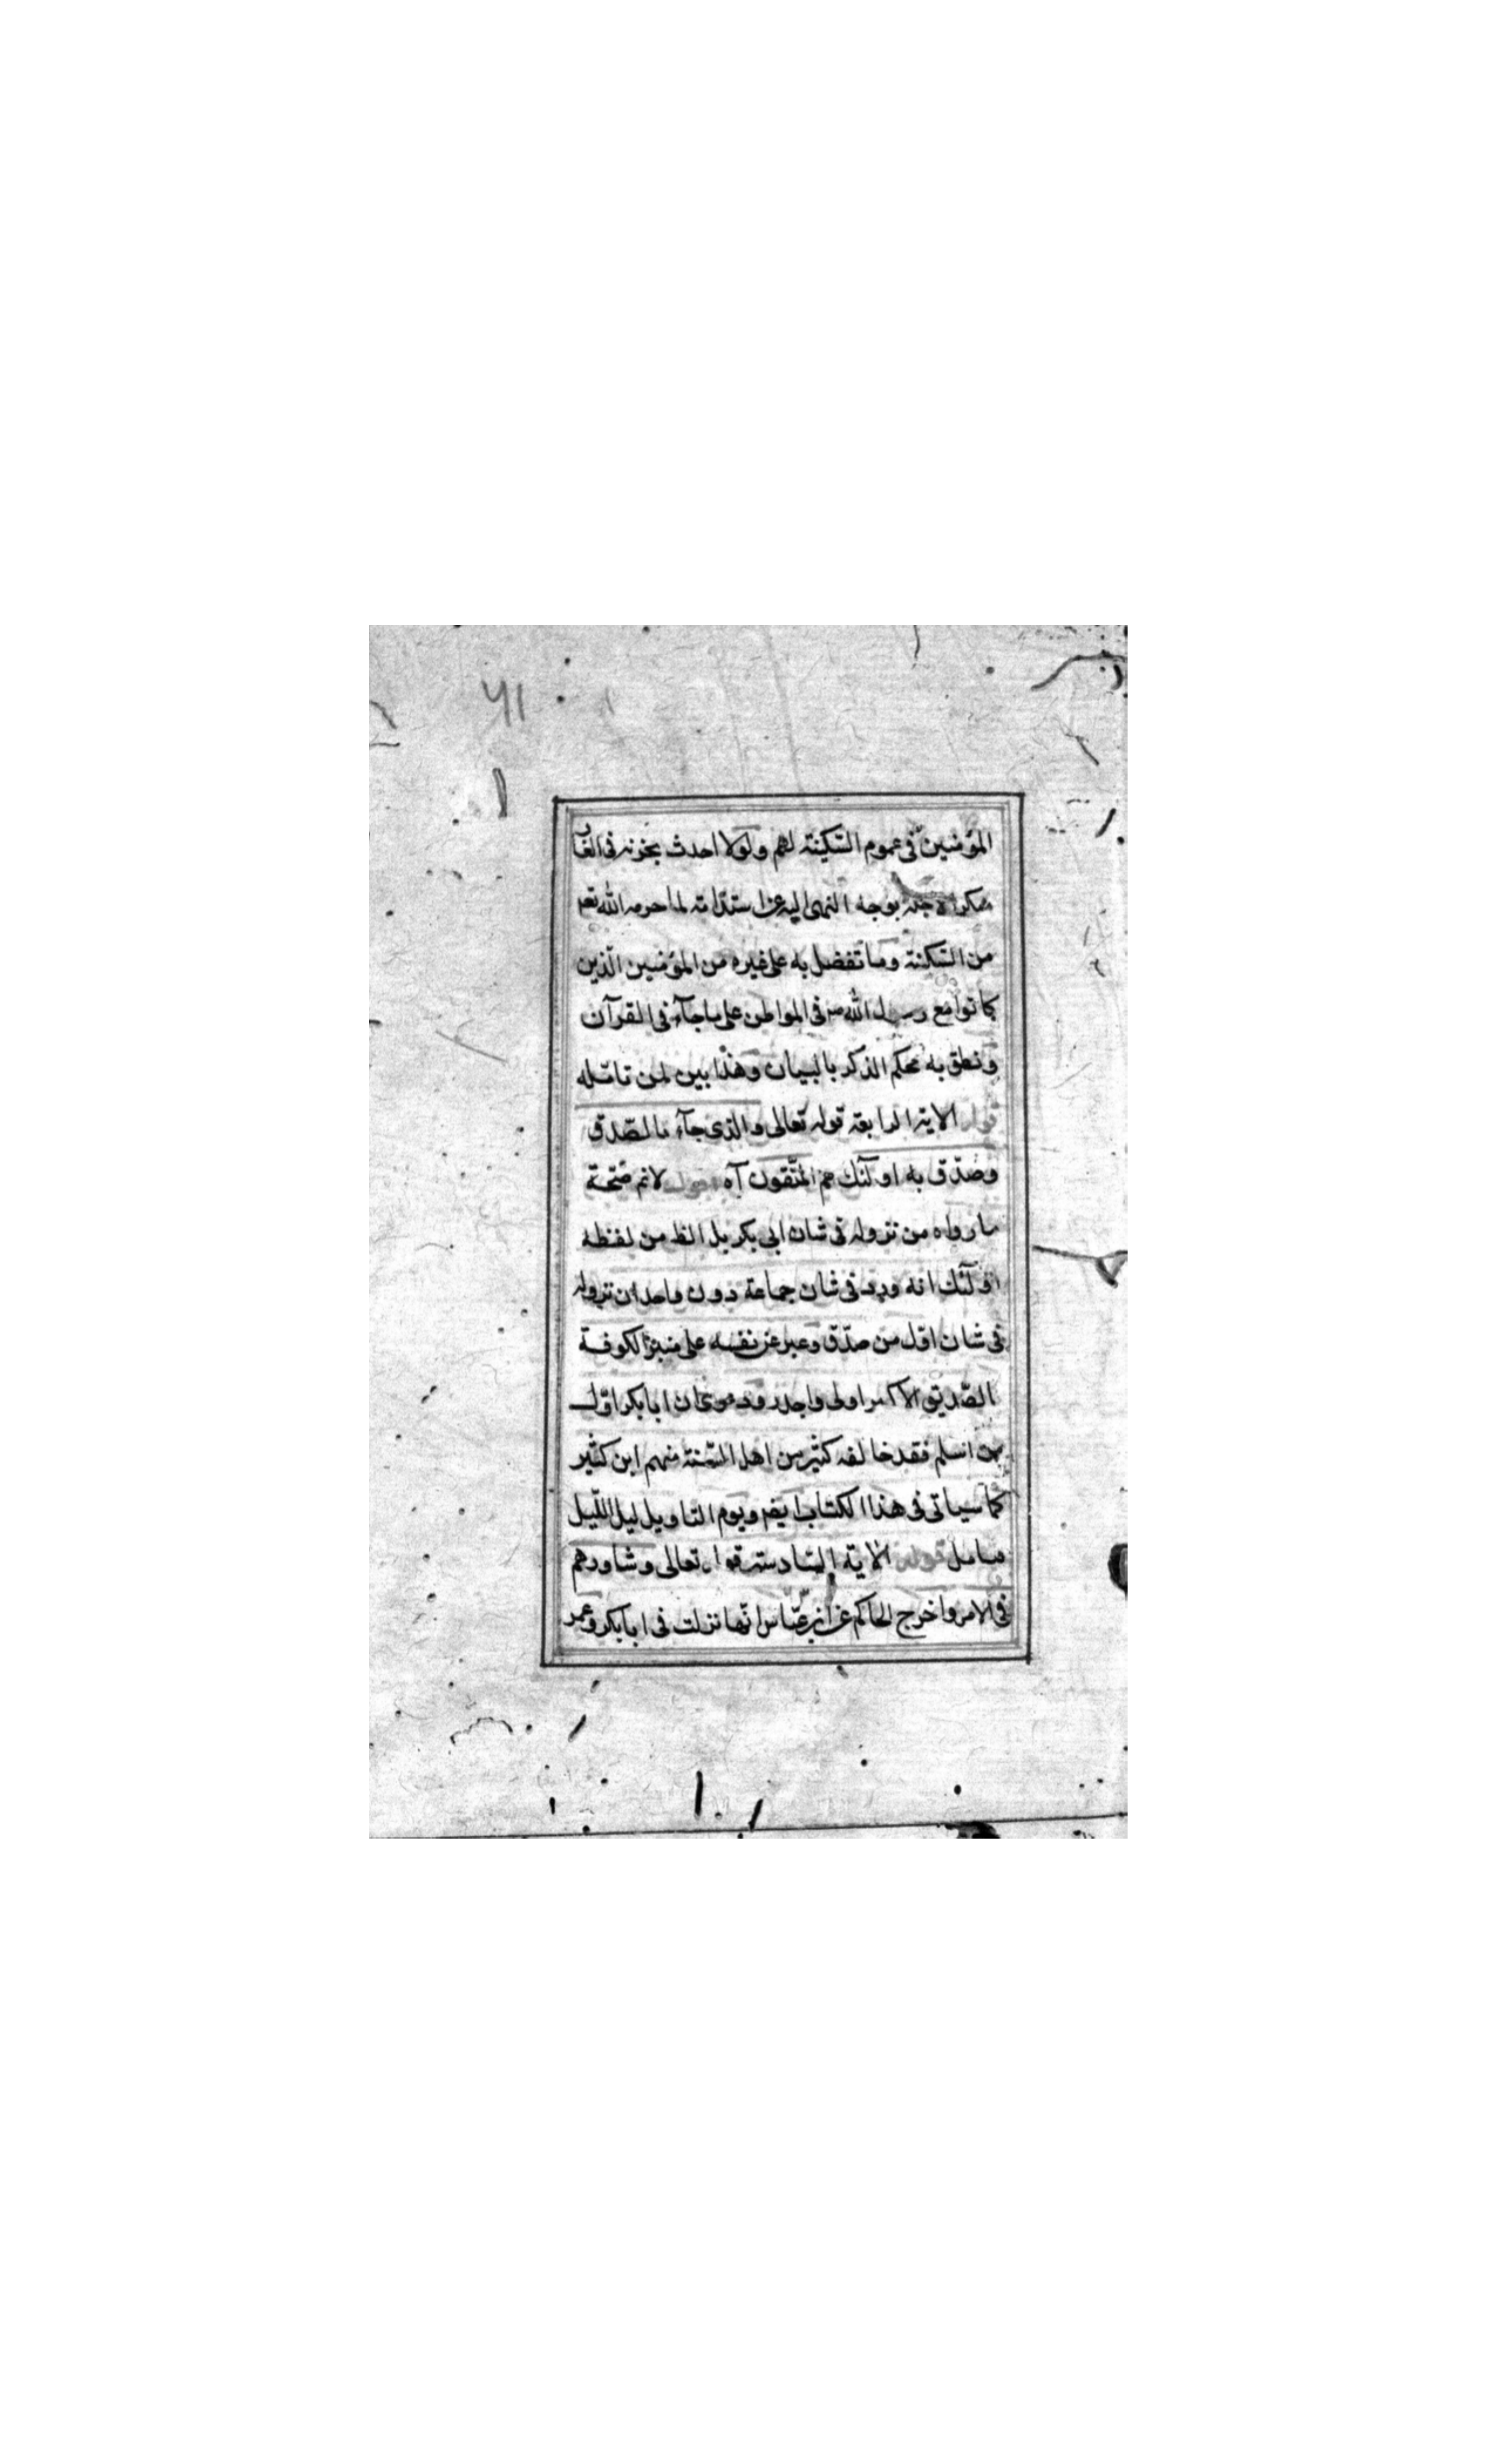 ٦١
المؤمنين فى عموم السّكينة لهم ولولا احدث بحزنه فى الغار
منكرا لاجله بوجه النهى اليه عن استدامته لما حرمه الله تعم
من السّكنة وما تفضل به على غيره من المؤمنين الّذين
كانوا مع رسول الله ص فى المواطن على ما جآء فى القرآن
ونطق به محكم الذكر بالبيان وهذا بين لمن تامّله
قوله الاية الرابعة قوله تعالى والذى جآء بالصّدق
وصدّق به اولئك هم المتّقون آه اقول لا نم صحّة
ما رواه من نزوله فى شان ابى بكر بل الظ من لفظه
اولئك انه ورد فى شان جماعة دون واحد ان نزوله
فى شان اوّل من صدّق وعبر عن نفسه على منبر الكوفة
الصّديق الاكبر اولى واجدر ودعوى ان ابا بكر اوّل
من اسلم فقد خالفه كثير من اهل السّنة منهم ابن كثير
كما سياتى فى هذا الكتاب ايضا ويوم التاويل ليل اللّيل
قوله الاية السّادسة قوله تعالى وشاورهم
فى الامر واخرج الحاكم عن ابن عبّاس انّها نزلت فى ابابكر وعمر